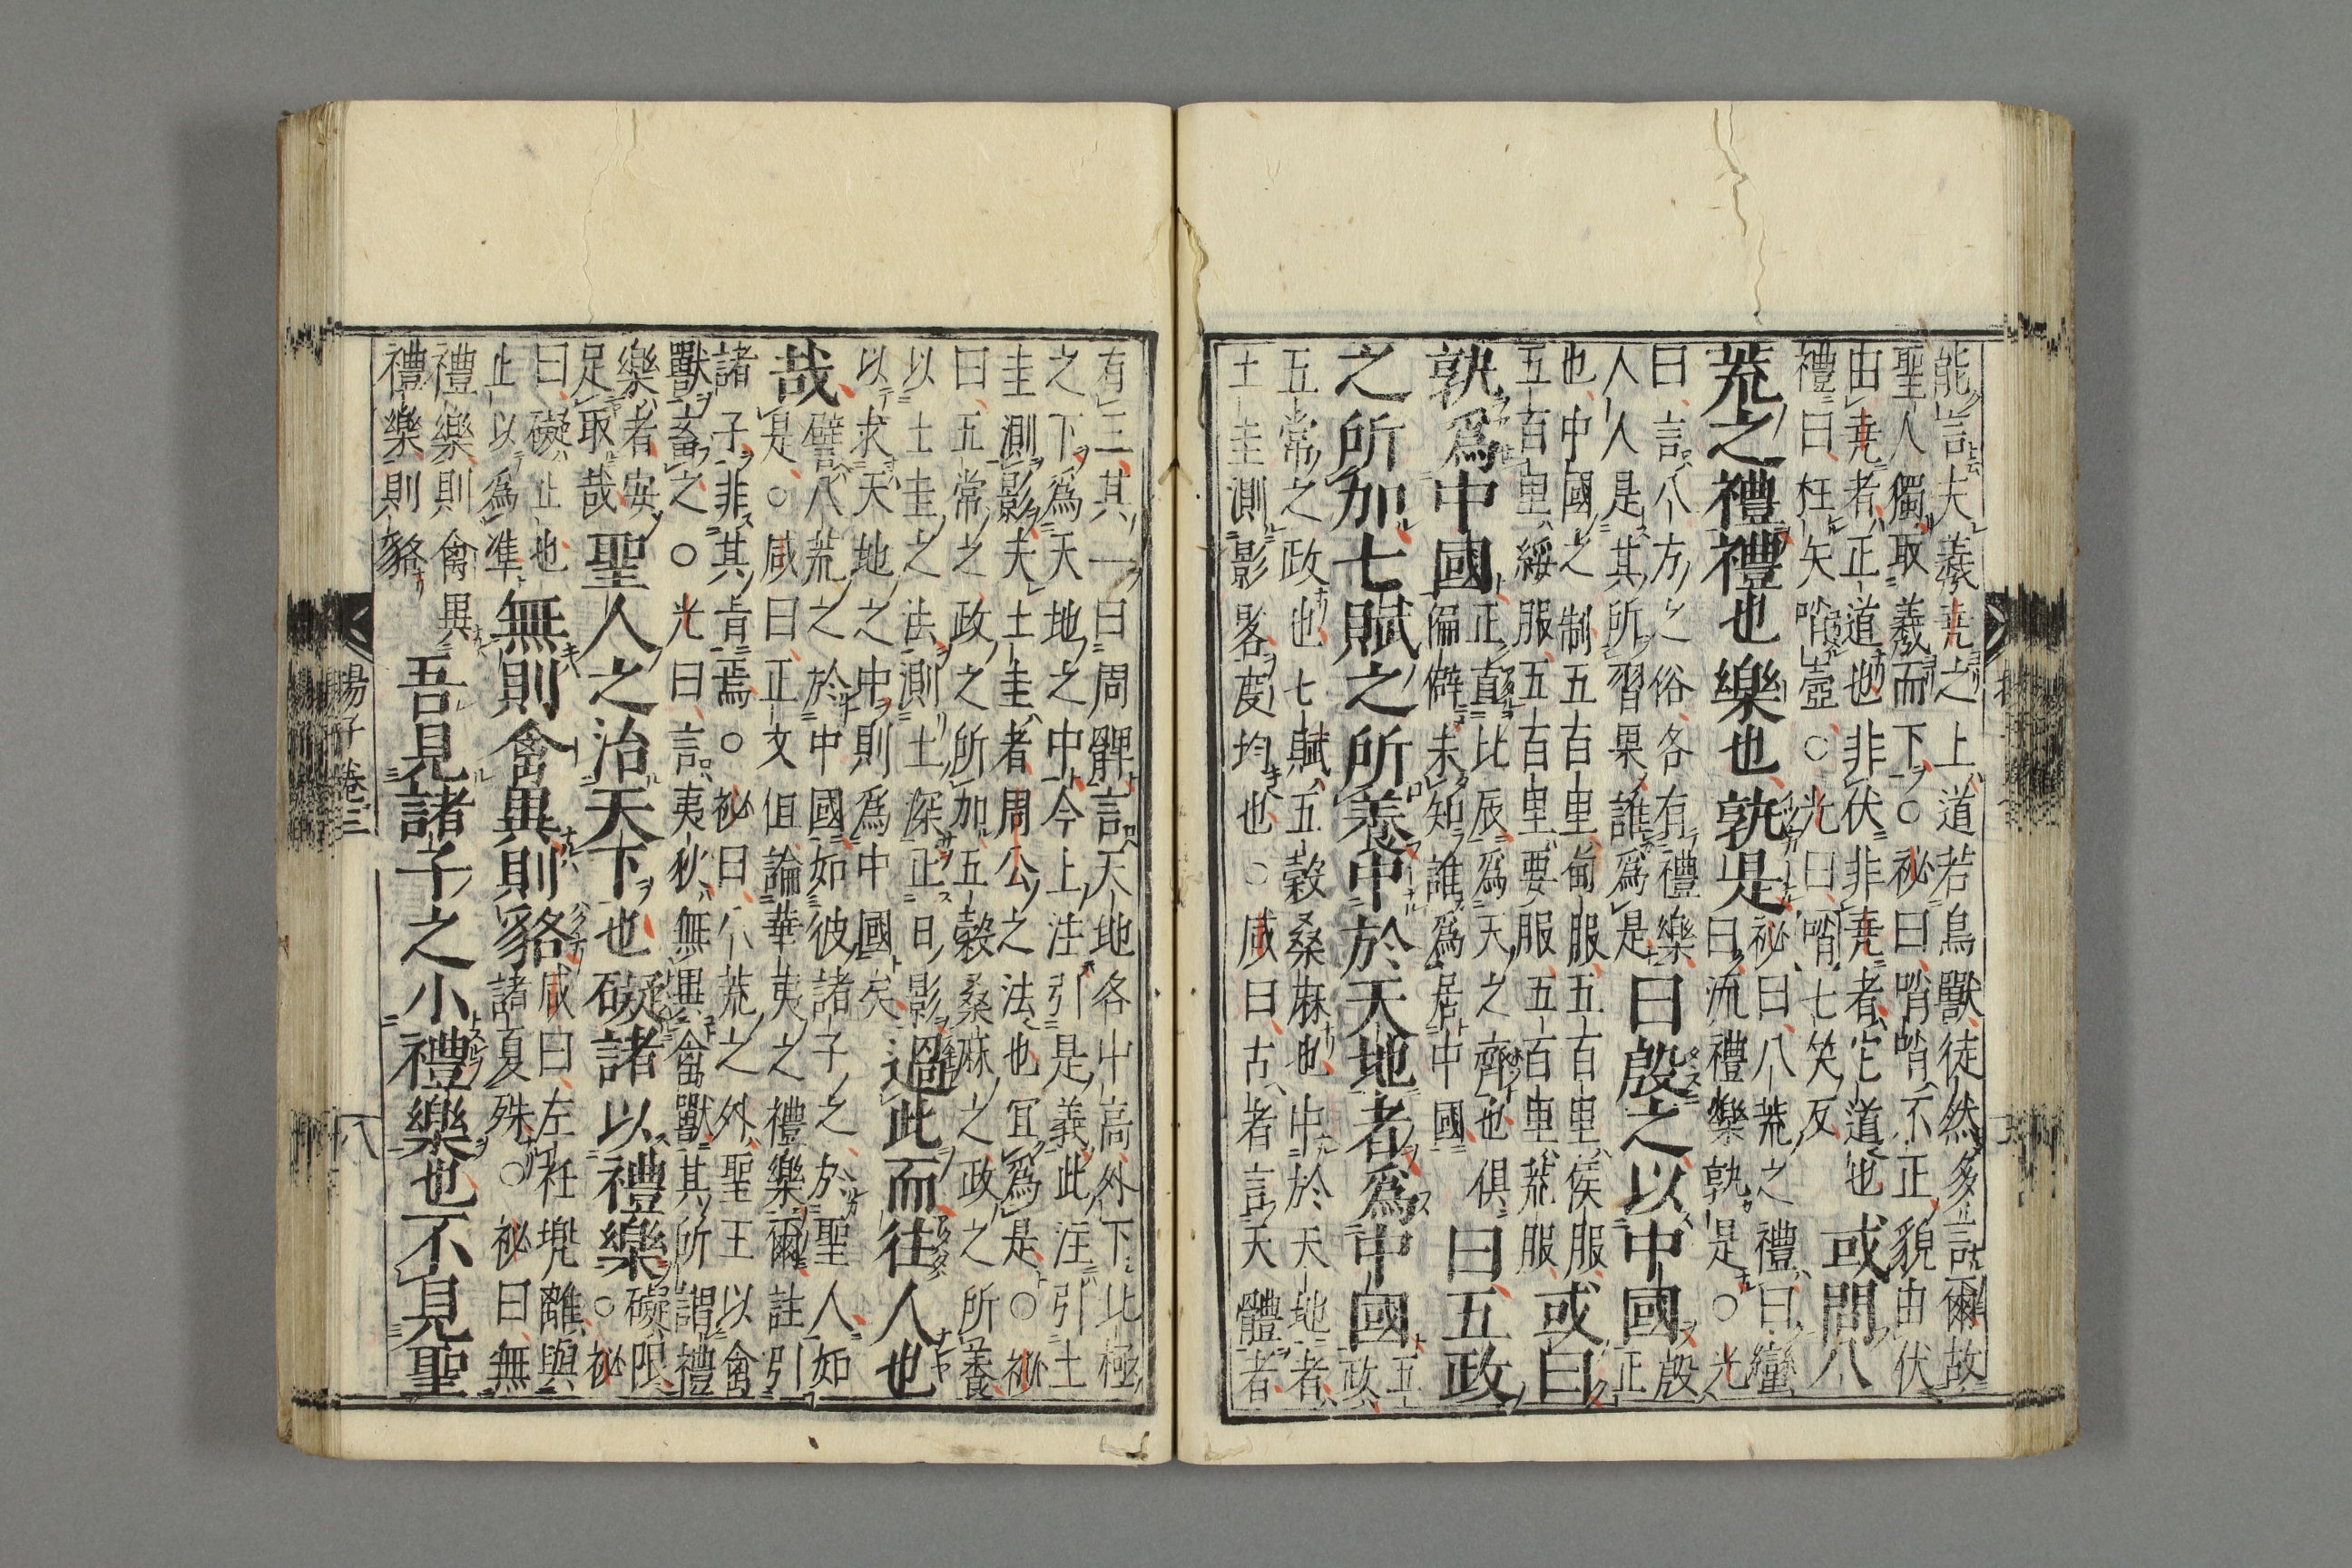 能言夫羲堯之上道若鳥獸徒然多言爾故
聖人獨取羲而下○祕曰哨哨不正貌由伏
由堯者正道也非伏非堯者它道也或問八
禮曰枉矢哨壺○光曰哨七笑反
荒之禮禮也樂也孰是祕曰八荒之禮曰蠻
曰流禮樂孰是○光
曰言八方之俗各有禮樂
人人是其所習果誰爲是曰殷之以中國殷
正
也中國之制五百里甸服五百里侯服或曰
五百里綏服五百里要服五百里荒服
孰爲中國正直比辰爲天之齊也俱曰五政
偏僻未知誰爲居中國
之所加七賦之所養中於天地者爲中國五
政
五常之政也七賦五穀桑麻也中於天地者
土圭測影晷度均也○咸曰古者言天體者
有三其一曰周髀言天地各中高外下北極
之下爲天地之中今上注引是義此注引土
圭測影夫土圭者周公之法也宜爲是○祕
曰五常之政之所加五穀桑麻之政之所養
以土圭之法測土深正日影
以求天地之中則爲中國矣過此而往人也
哉譬八荒之於中國如彼諸子之於聖人如
是○咸曰正文但論華夷之禮樂爾註引
諸子非其肯焉○祕曰八荒之外聖王以禽
獸畜之○光曰言夷狄無異禽獸其所謂禮
樂者安
足取哉聖人之治天下也礙諸以禮樂礙限
○祕
曰礙止也
止以爲準無則禽異則貉咸曰左衽兜離與
諸夏殊○祕曰無
禮樂則禽異
禮樂則貉吾見諸子之小禮樂也不見聖
揚子卷三
八